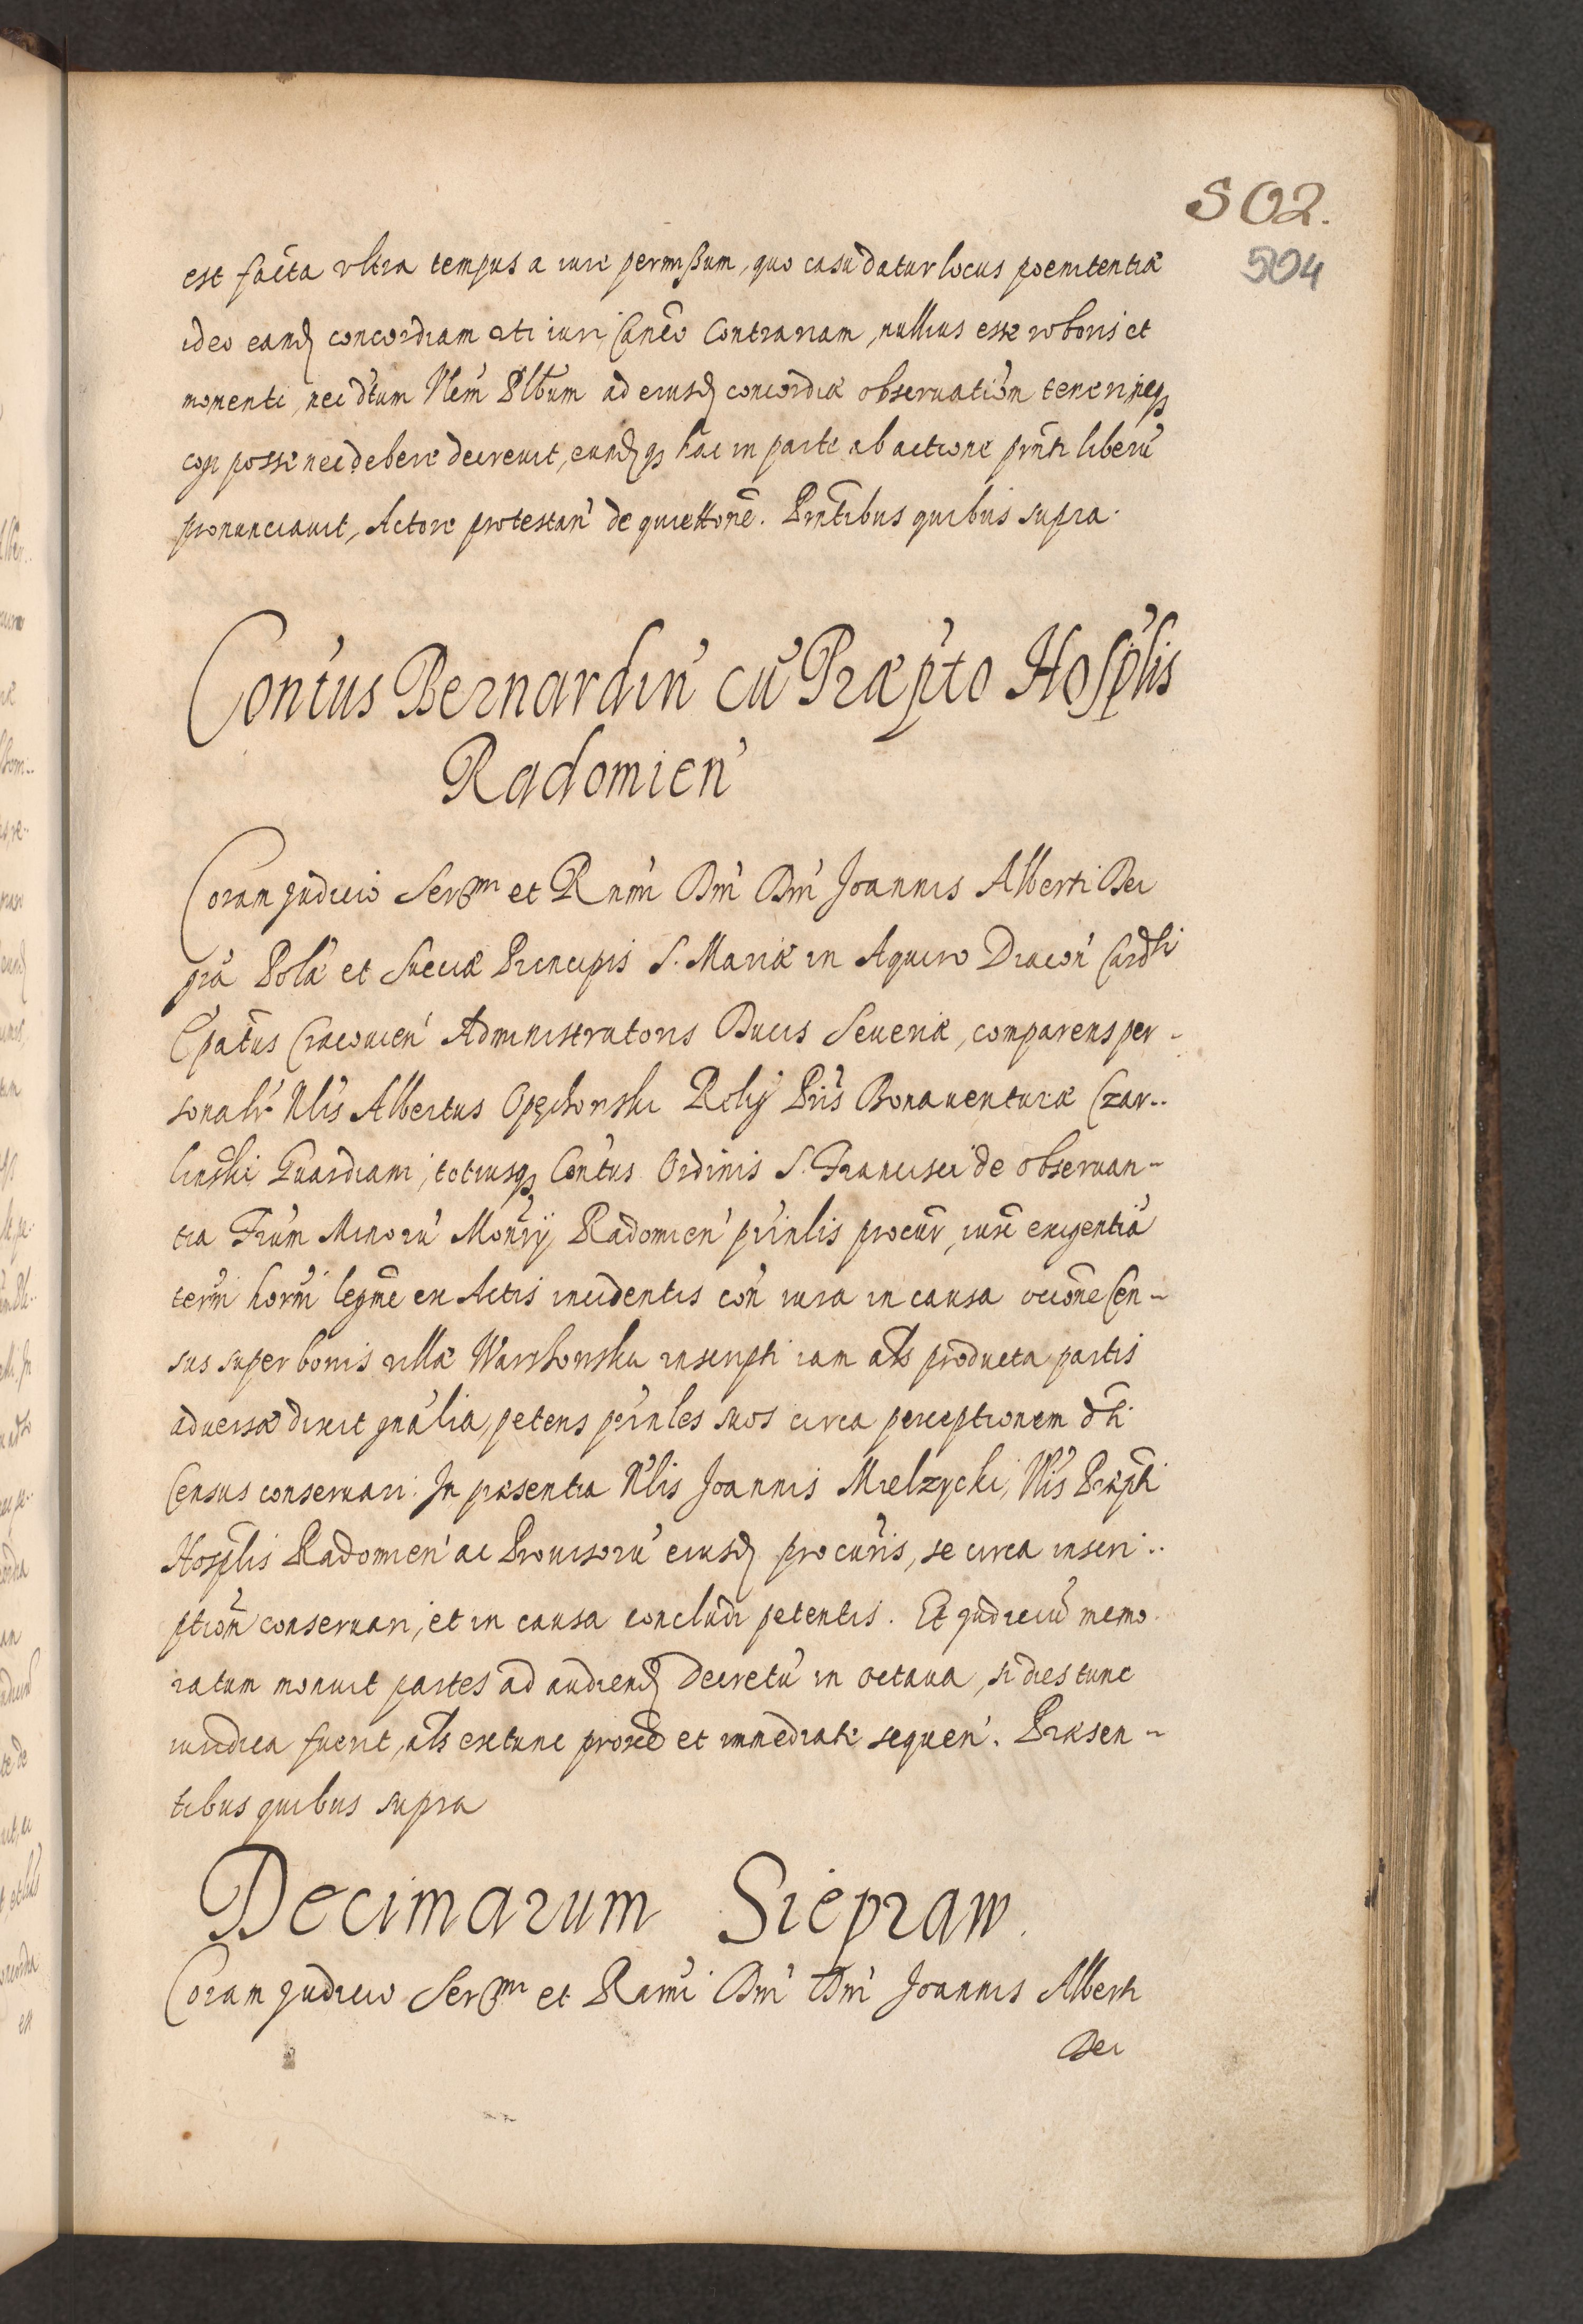 502.
504
est facta ultra tempus a iure permissum, quo casu datur locus poenitentiæ
ideo eand concordiam uti iuri Canco Contrariam, nullius esse roboris et
momenti, nec dtum Nlem Pltbum ad eiusd concordiæ observation teneri neq
cogi posse nec debere decrevit, eundq hac in parte ab actione prnti liberu
pronunciavit, Actore protestan de quiettone. Prntibus quibus supra.
Contus Bernardin cu Præpto Hosplis
Radomien
Coram Judicio Sermi et Rnmi Dni Dni Joannis Alberti Dei
gra Pola et Sueciæ Principis S. Mariæ in Aquiro Diacon Cardlis
Epatus Cracovien Administratoris Ducis Severiæ, comparens per-
sonalr Nlis Albertus Opęchowski Religi Pris Bonaventuræ Czar..
linski Guardiani, totiusq Contus Ordinis S. Francisci de observan-
tia Frum Minoru Monrij Radomien prinlis procur, iuxe exigentia
termi horni legme ex Actis incidentis con iura in causa occone Cen-
sus super bonis villæ Warchowska inscripti iam als producta partis
adversæ dixit gnalia, petens prinles suos circa perceptionem dti
Census conservari. In præsentia Nlis Joannis Mielzycki, Nlis Præpti
Hosplis Radomien ac Provisoru eiusd procuris, se circa inscri..
ption conservari, et in causa concludi petentis. Et Judiciu memo
ratum monuit partes ad audiend Decretu in octava, si dies tunc
iuridica fuerit, als extunc proxe et immediate sequen. Præsen-
tibus quibus supra
Decimarum Siepraw.
Coram Judicio Sermi et Rnmi Dni Dni Joannis Alberti
Dei